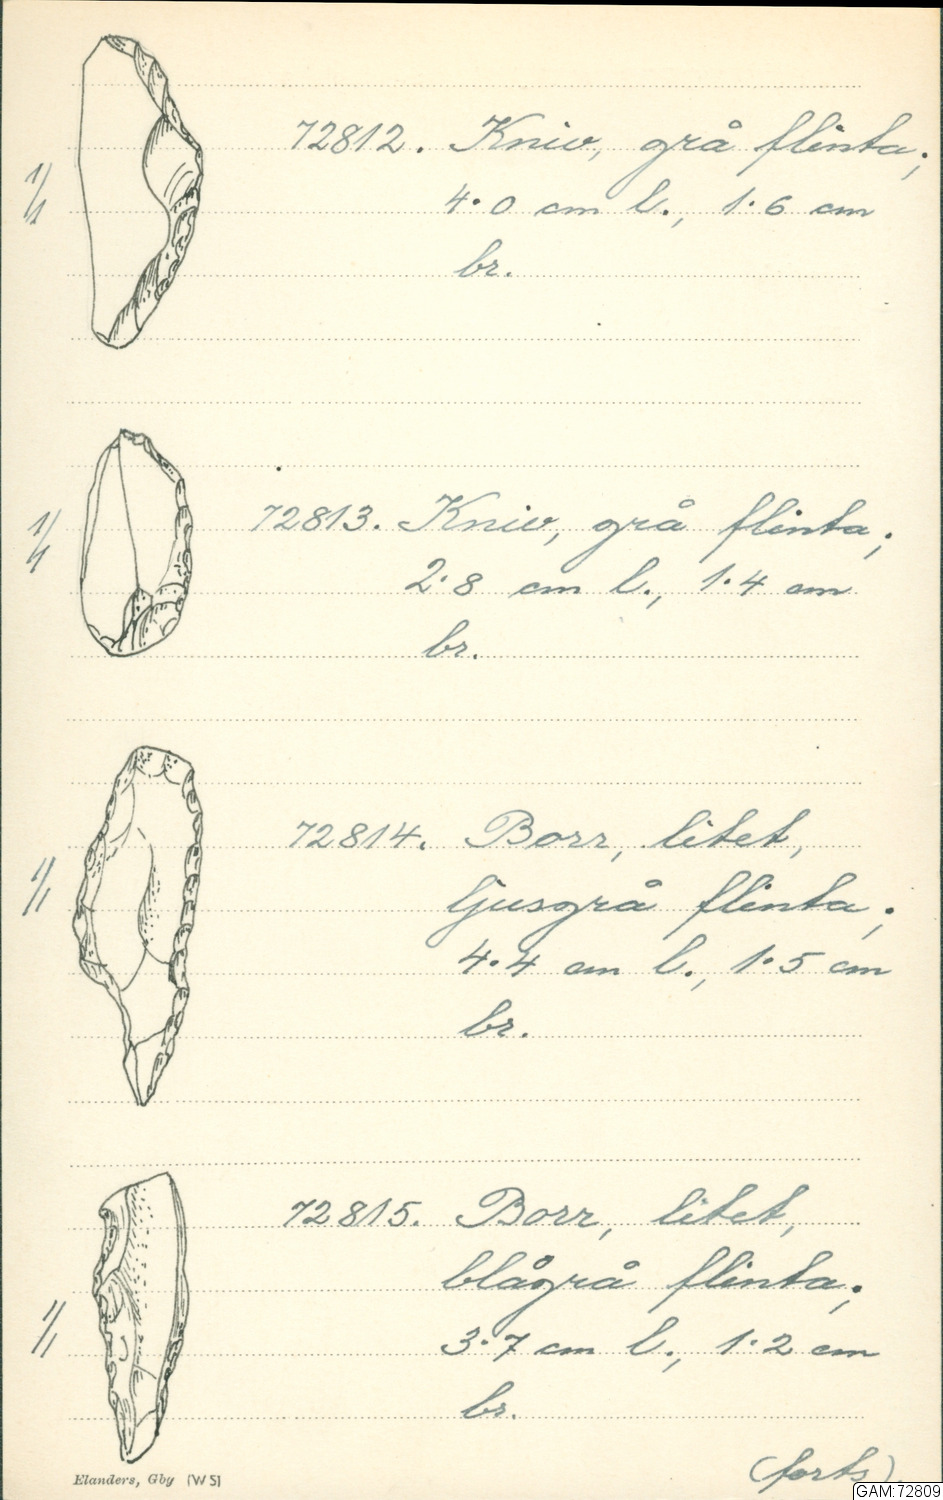 72812. Kniv, grå flinta;
1/1
4.0 cm l., 1.6 cm
br.
72813. Kniv, grå flinta;
1/1
2.8 cm l., 1.4 cm
br.
72814. Borr, litet,
1/1
ljusgrå flinta;
4.4 cm l., 1.5 cm
br.
72815. Borr, litet,
blågrå flinta;
1/1
3.7 cm l., 1.2 cm
br.
(forts).
Elanders, Gby (WS)
GAM:72809